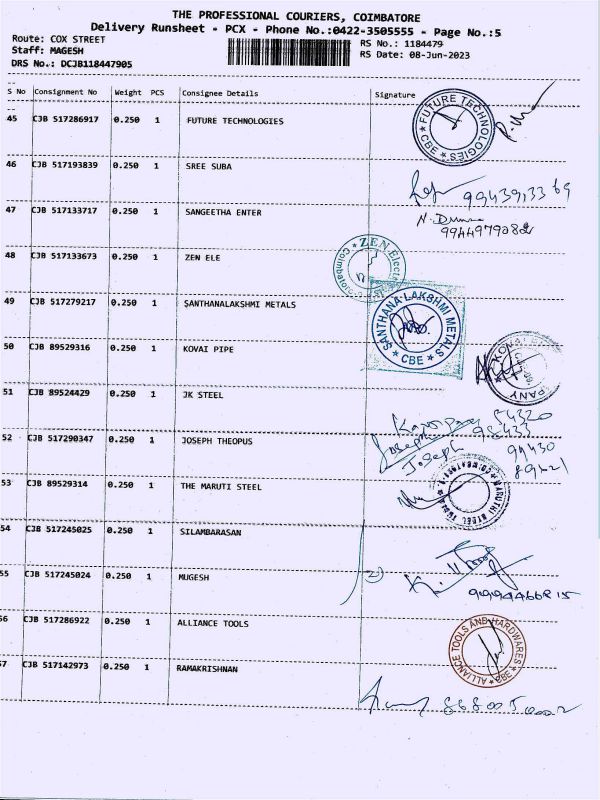 THE PROFESSIONAL COURIERS, COIMBATORE
Delivery Runsheet - PCX - Phone No.:0422-3505555 - Page No.:5
Route: COX STREET
Staff: MAGESH
DRS No.: DCJB118447905
RS No.: 1184479
RS Date: 08-Jun-2023
S No Consignment No Weight PCS Consignee Details Signature
45 CJB 517286917 0.250 1 FUTURE TECHNOLOGIES
FUTURE TECHNOLOGIES
CBE
46 CJB 517193839 0.250 1 SREE SUBA
47 CJB 517133717 0.250 1 SANGEETHA ENTER
48 CJB 517133673 0.250 1 ZEN ELE
ZEN
49 CJB 517279217 0.250 1 SANTHANALAKSHMI METALS
SANTHANA LAKSHMI METALS
CBE
50 CJB 89529316 0.250 1 KOVAI PIPE
51 CJB 89524429 0.250 1 JK STEEL
52 CJB 517290347 0.250 1 JOSEPH THEOPUS
Joseph
J.Seph
53 CJB 89529314 0.250 1 THE MARUTI STEEL
54 CJB 517245025 0.250 1 SILAMBARASAN
55 CJB 517245024 0.250 1 MUGESH
56 CJB 517286922 0.250 1 ALLIANCE TOOLS
ALLIANCE TOOLS AND HARDWARES
CBE
57 CJB 517142973 0.250 1 RAMAKRISHNAN